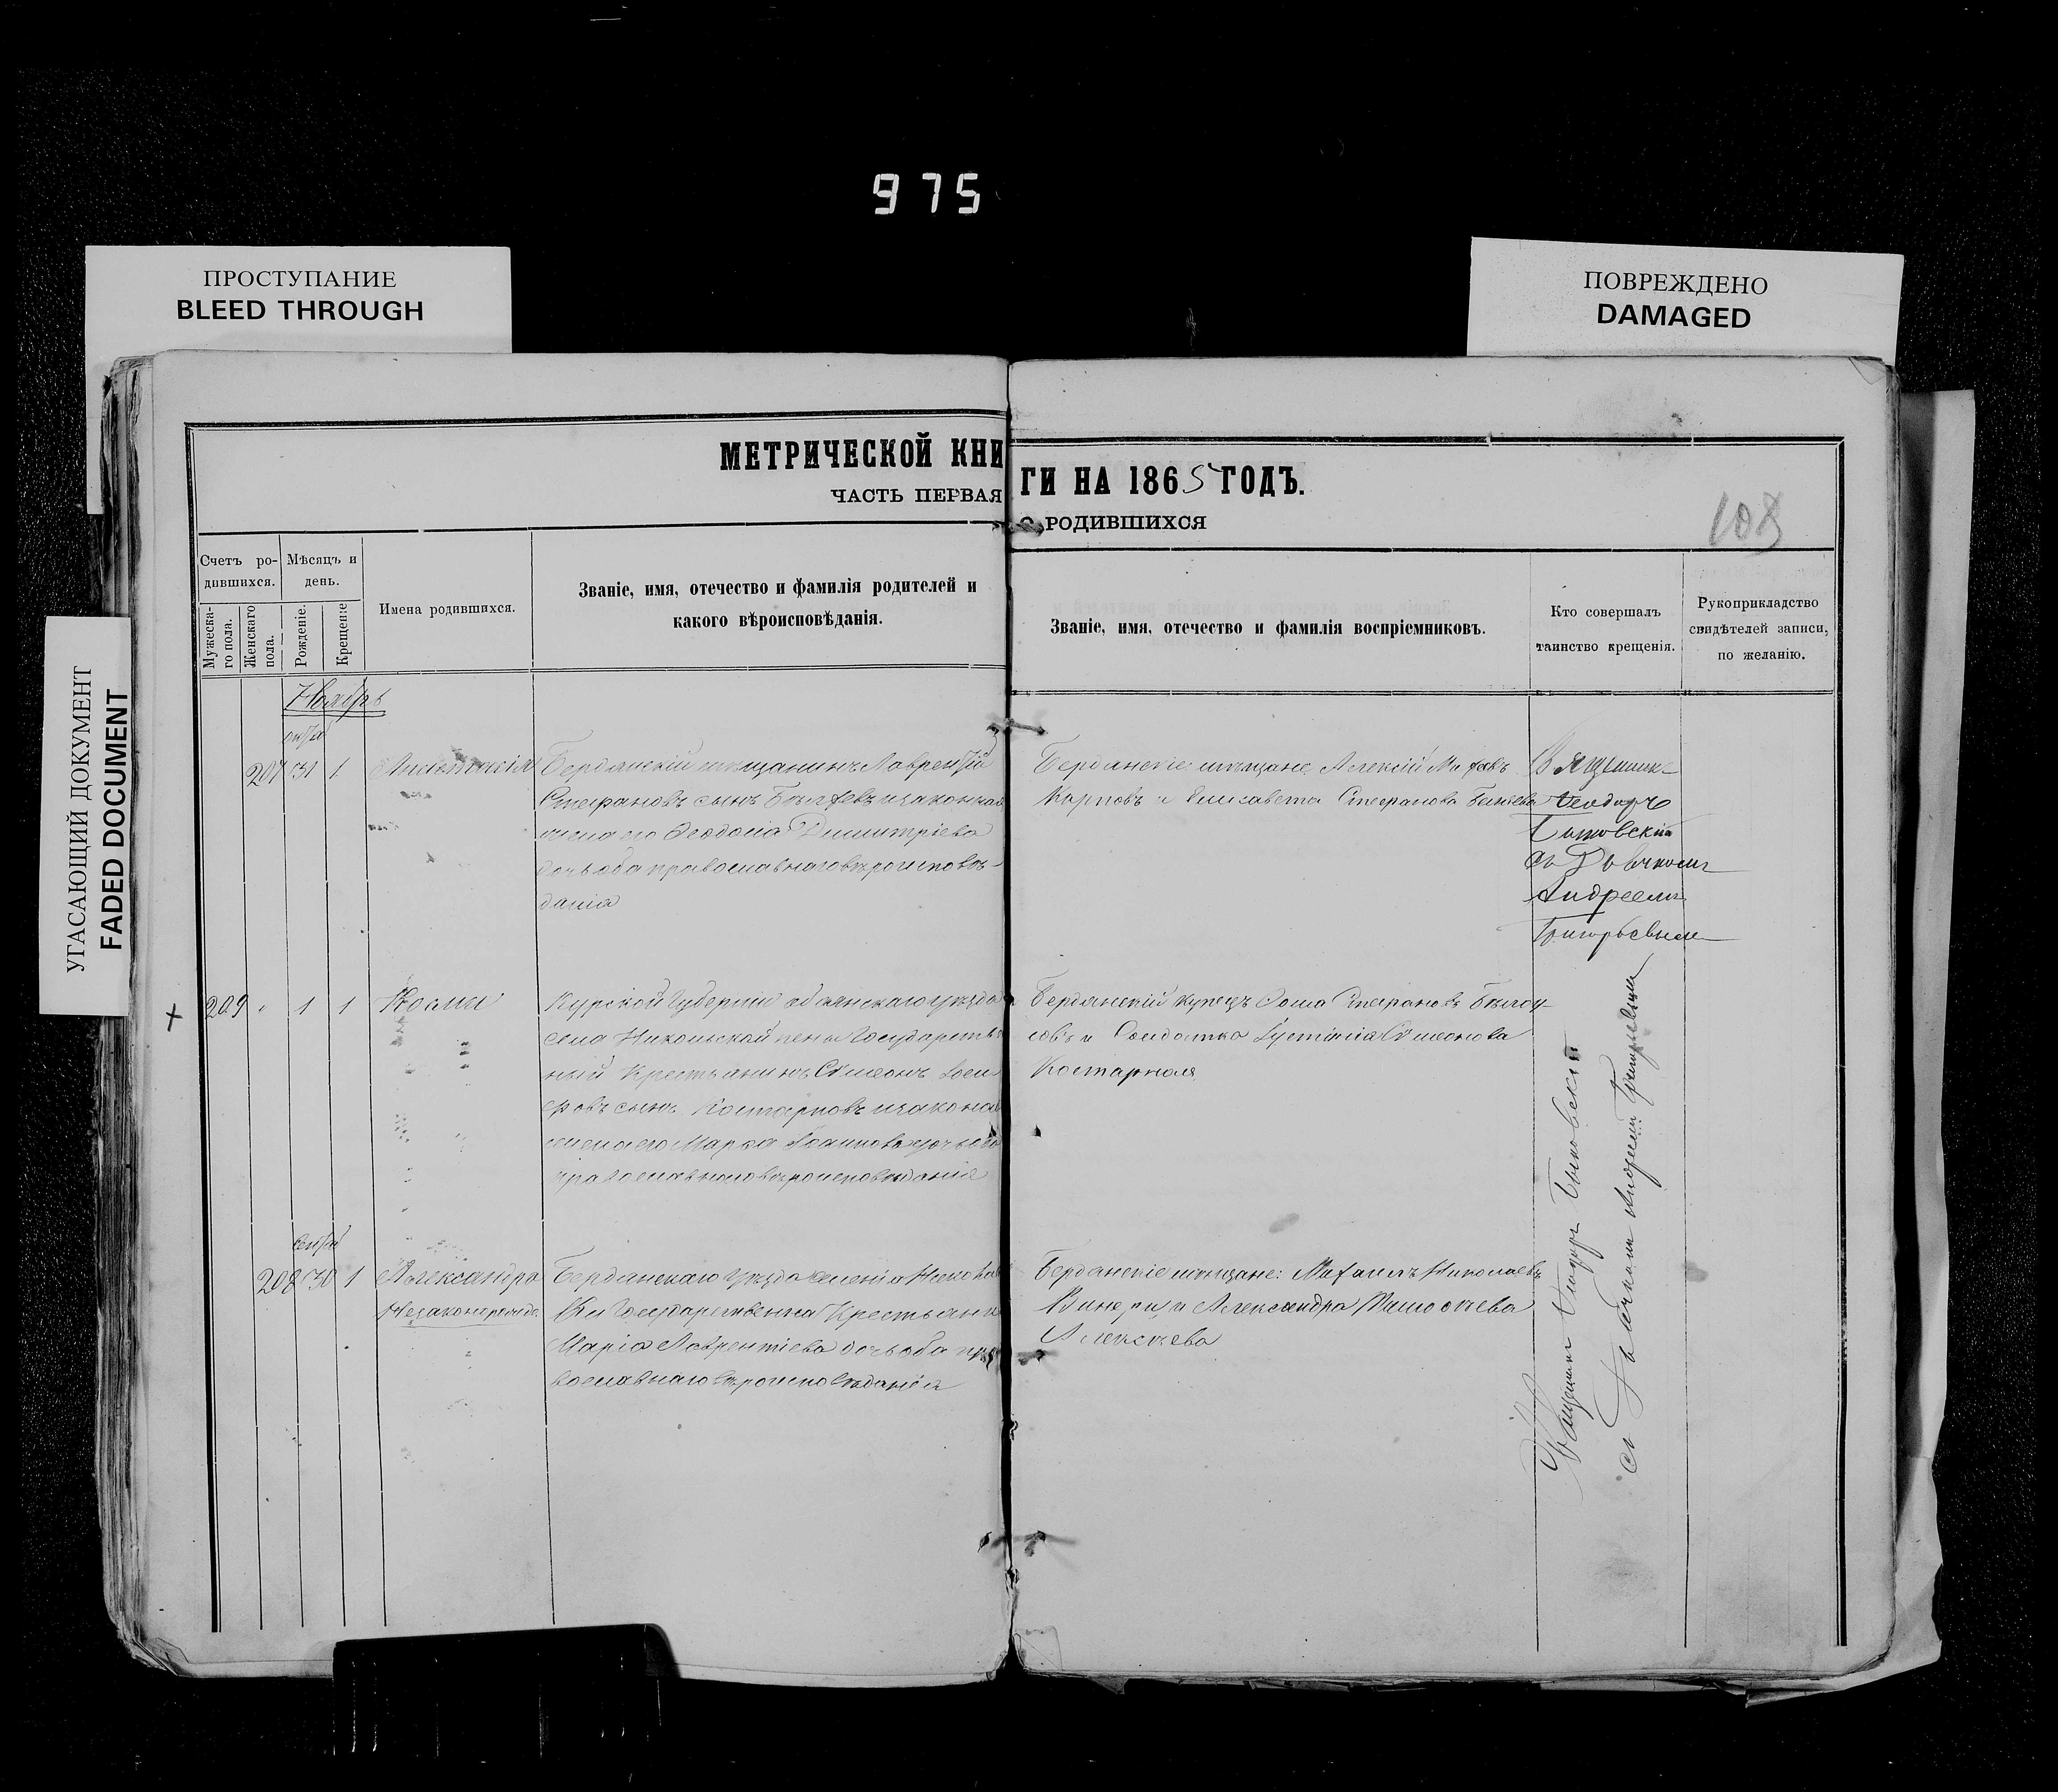 975
ПРОСТУПАНИЕ
BLEED THROUGH
ПОВРЕЖДЕНО
DAMAGED
УГАСАЮЩИЙ ДОКУМЕНТ
FADED DOCUMENT
МЕТРИЧЕСКОЙ КНИ
ЧАСТЬ ПЕРВАЯ
ГИ НА 1865 ГОДЪ.
О РОДИВШИХСЯ
108
Счетъ ро-
дившихся.
Мѣсяцъ и
день.
Мужеска-
го пола.
Женскаго
пола.
Рожденіе.
Крещеніе
Имена родившихся.
Званіе, имя, отечество и фамилія родителей и
какого вѣроисповѣданія.
Званіе, имя, отечество и фамилія воспріемниковъ.
Кто совершалъ
таинство крещенія.
Рукоприкладство
свидѣтелей записи,
по желанію.
Ноябрь
207 31 1
Бердянскій мѣщанинъ Лаврентій
Стефановъ сынъ и законная
жена его Феодосіа Димитріева
дочь оба православнаго вѣроисповѣ-
данія
Бердянскіе мѣщане Алексій
Карповъ и Елисавета Стефанова
Священникъ
Феодоръ
Быковскій
съ Дьячкомъ
Андреемъ
Григорьевымъ
209 " 1 1 Косма
Курской Губерніи Обоянскаго уѣзда
села Никольской Государствен
ный Крестьянинъ Сѵмеонъ
сынъ Костарновъ и законная
жена его Марфа дочь оба
православнаго вѣроисповѣданія
Бердянскій купецъ Стефановъ Бѣлоу-
совъ и Солдатка Сѵмеонова
Костарная
208 30 1 Александра
Незаконорожд.
Бердянскаго уѣзда селенія
Государственна Крестьянка
Марія Лаврентіева дочь оба пра
вославнаго вѣроисповѣданія
Бердянскіе мѣщане: Михаилъ Николаевъ
и Александра Тимофеева
Алексѣева
Священникъ Феодоръ Быковскій
съ Дьячкомъ Андреемъ Григорьевымъ